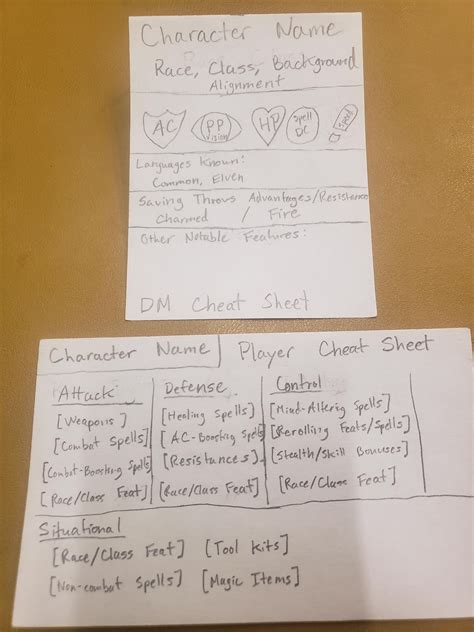 Character Name
Race, Class, Background
Alignment
AC PP Vision HP Spell DC Speed
Languages Known:
Common, Elven
Saving Throws Advantages/Resistances
Charmed / Fire
Other Notable Features:
DM Cheat Sheet
Character Name
Player Cheat Sheet
Attack
[Weapons]
[Combat Spells]
[Combat-Boosting Spells]
[Race/Class Feat]
Defense
[Healing Spells]
[AC-Boosting Spells]
[Resistances]
[Race/Class Feat]
Control
[Mind-Altering Spells]
[Rerolling Feats/Spells]
[Stealth/Skill Bonuses]
[Race/Class Feat]
Situational
[Race/Class Feat] [Tool Kits]
[Non-combat Spells] [Magic Items]